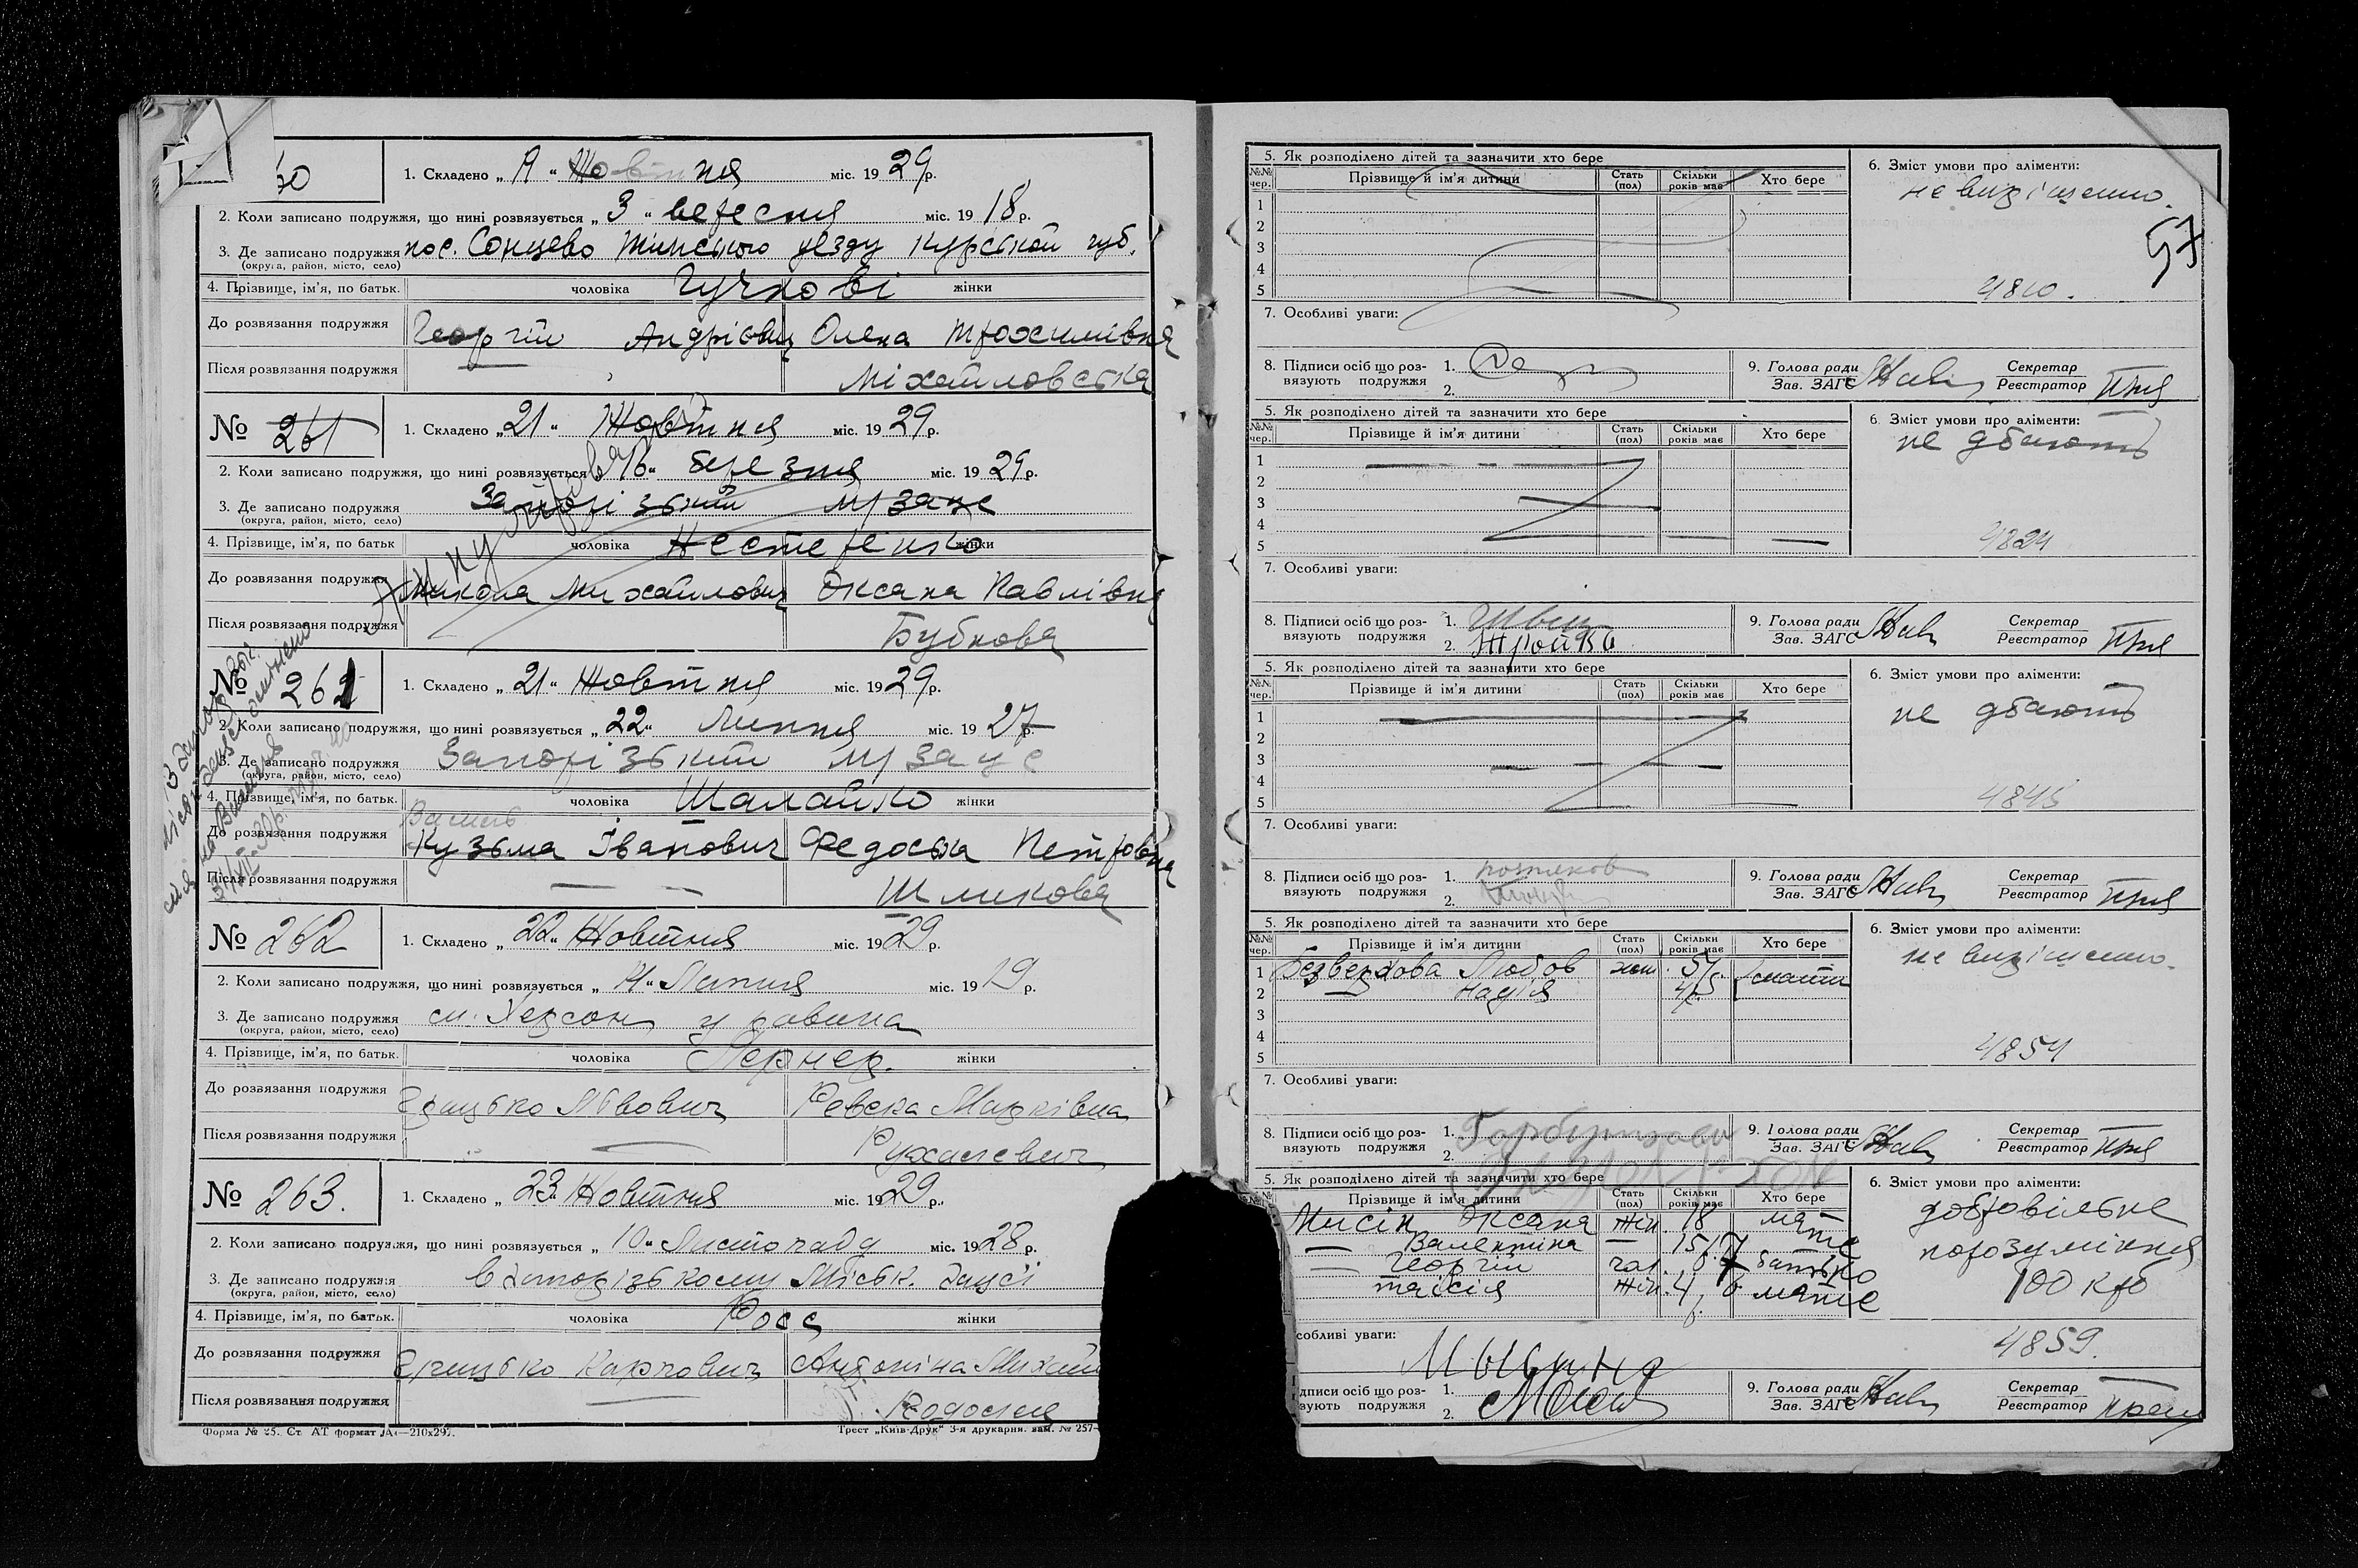 60
1. Складено „ Я “ Жовтня міс. 1929р.
2. Коли записано подружжя, що нині розвязується „ 3 “ вересня міс. 1918р.
3. Де записано подружжя пос. Сонцево Тимського уезду Курської губ.
(округа, район, місто, село)
4. Прізвище, ім'я, по батьк. чоловіка Гучкові жінки
До розвязання подружжя Георгій Андрієвич Олена Трохимівна
Після розвязання подружжя Міхайловська
№ 261 1. Складено „ 21 “ Жовтня міс. 1929р.
2. Коли записано подружжя, що нині розвязується 16 “ березня міс. 1929р.
3. Де записано подружжя Запорізький
(округа, район, місто, село)
4. Прізвище, ім'я, по батьк чоловіка Нестеренко жінки
До розвязання подружжя Микола Михайлович Оксана Павлівна
Після розвязання подружжя Бубнова
Анульована
№ 261 1. Складено „ 21 “ Жовтня міс. 1929р.
2. Коли записано подружжя, що нині розвязується „ 22 “ Липня міс. 1927р.
3. Де записано подружжя Запорізький
(округа, район, місто, село)
4. Прізвище, ім'я, по батьк. чоловіка Шалайко жінки
Василь
До розвязання подружжя Кузьма Іванович Федоська Петровна
Після розвязання подружжя — — Шликова
№ 262 1. Складено „ 22 “ Жовтня міс. 1929 р.
2. Коли записано подружжя, що нині розвязується „ 14 “ Липня міс. 1919 р.
3. Де записано подружжя м. Херсон у равина
(округа, район, місто, село)
4. Прізвище, ім'я, по батьк. чоловіка Лернер. жінки
До розвязання подружжя Грицько Львович Ревека Марківна
Після розвязання подружжя —
№ 263. 1. Складено „ 23 “ Жовтня міс. 1929 р.
2. Коли записано подружжя, що нині розвязується „ 10 “ Листопада міс. 1928 р.
3. Де записано подружжя в Запорізькому Міськ. Загсі
(округа, район, місто, село)
4. Прізвище, ім'я, по батьк. чоловіка Росс жінки
До розвязання подружжя Грицько Карпович Антоніна Михайл
Після розвязання подружжя —
Форма № 25. Ст. АТ формат А4—210х297.
Трест „Київ-Друк“ 3-я друкарня. зам. № 257-
57
5. Як розподілено дітей та зазначити хто бере
6. Зміст умови про аліменти:
№№ чер. Прізвище й ім'я дитини Стать (пол) Скільки років має Хто бере
не вирішено.
1
2
3
4
5
4810.
7. Особливі уваги:
8. Підписи осіб що розвязують подружжя 1. 2.
9. Голова ради Зав. ЗАГС Секретар Реєстратор
5. Як розподілено дітей та зазначити хто бере
6. Зміст умови про аліменти:
№№ чер. Прізвище й ім'я дитини Стать (пол) Скільки років має Хто бере
не дбають
1
2
3
4
5
4824
7. Особливі уваги:
8. Підписи осіб що розвязують подружжя 1. 2.
9. Голова ради Зав. ЗАГС Секретар Реєстратор
5. Як розподілено дітей та зазначити хто бере
6. Зміст умови про аліменти:
№№ чер. Прізвище й ім'я дитини Стать (пол) Скільки років має Хто бере
не дбають
1
2
3
4
5
4845
7. Особливі уваги:
8. Підписи осіб що розвязують подружжя 1. 2.
9. Голова ради Зав. ЗАГС Секретар Реєстратор
5. Як розподілено дітей та зазначити хто бере
6. Зміст умови про аліменти:
№№ чер. Прізвище й ім'я дитини Стать (пол) Скільки років має Хто бере
не вирішено.
1 Безверхова Любов жін. 5 мати
2 Надія
3
4
5
4854
7. Особливі уваги:
8. Підписи осіб що розвязують подружжя 1. 2.
9. Голова ради Зав. ЗАГС Секретар Реєстратор
5. Як розподілено дітей та зазначити хто бере
6. Зміст умови про аліменти:
Прізвище й ім'я дитини Стать (пол) Скільки років має Хто бере
добровільне
порозуміння
100 крб
Мисін Оксана жін. 18 мати
— Валентина — 15
— Георгій чол. батько
Таісія жін. 4 мати
собливі уваги:
4859.
дписи осіб що розвязують подружжя 1. 2.
9. Голова ради Зав. ЗАГС Секретар Реєстратор